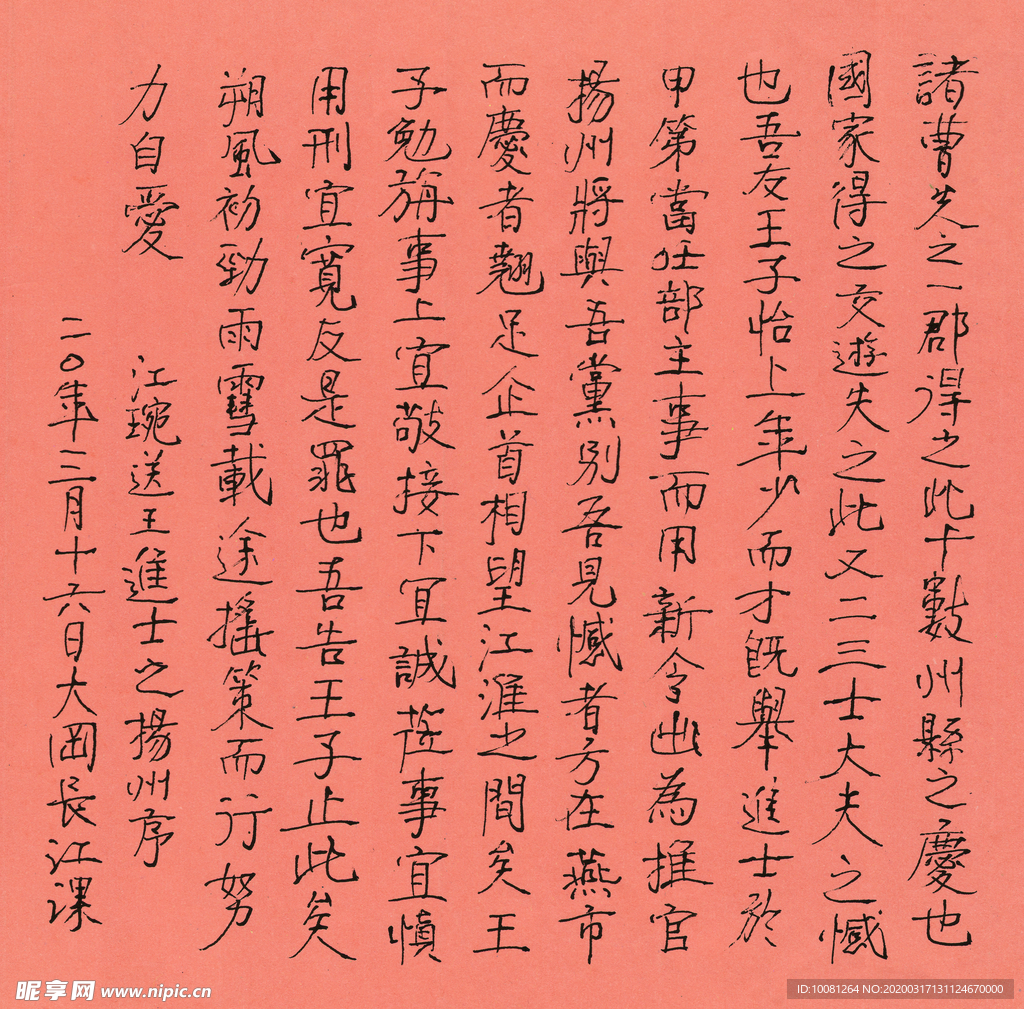 諸曹失之一郡得之此十數州縣之慶也
國家得之交遊失之此又二三士大夫之憾
也吾友王子怡上年少而才既舉進士於
甲第當任部主事而用新令出為推官
揚州將與吾黨別吾見憾者方在燕市
而慶者翹足企首相望江淮之間矣王
子勉旃事上宜敬接下宜誠莅事宜慎
用刑宜寬反是罪也吾告王子止此矣
朔風初勁雨雪載途搖策而行努
力自愛
江琬送王進士之揚州序
二〇年三月十六日大岡長江课
昵享网 www.nipic.cn
ID:10081264 NO:20200317131124670000